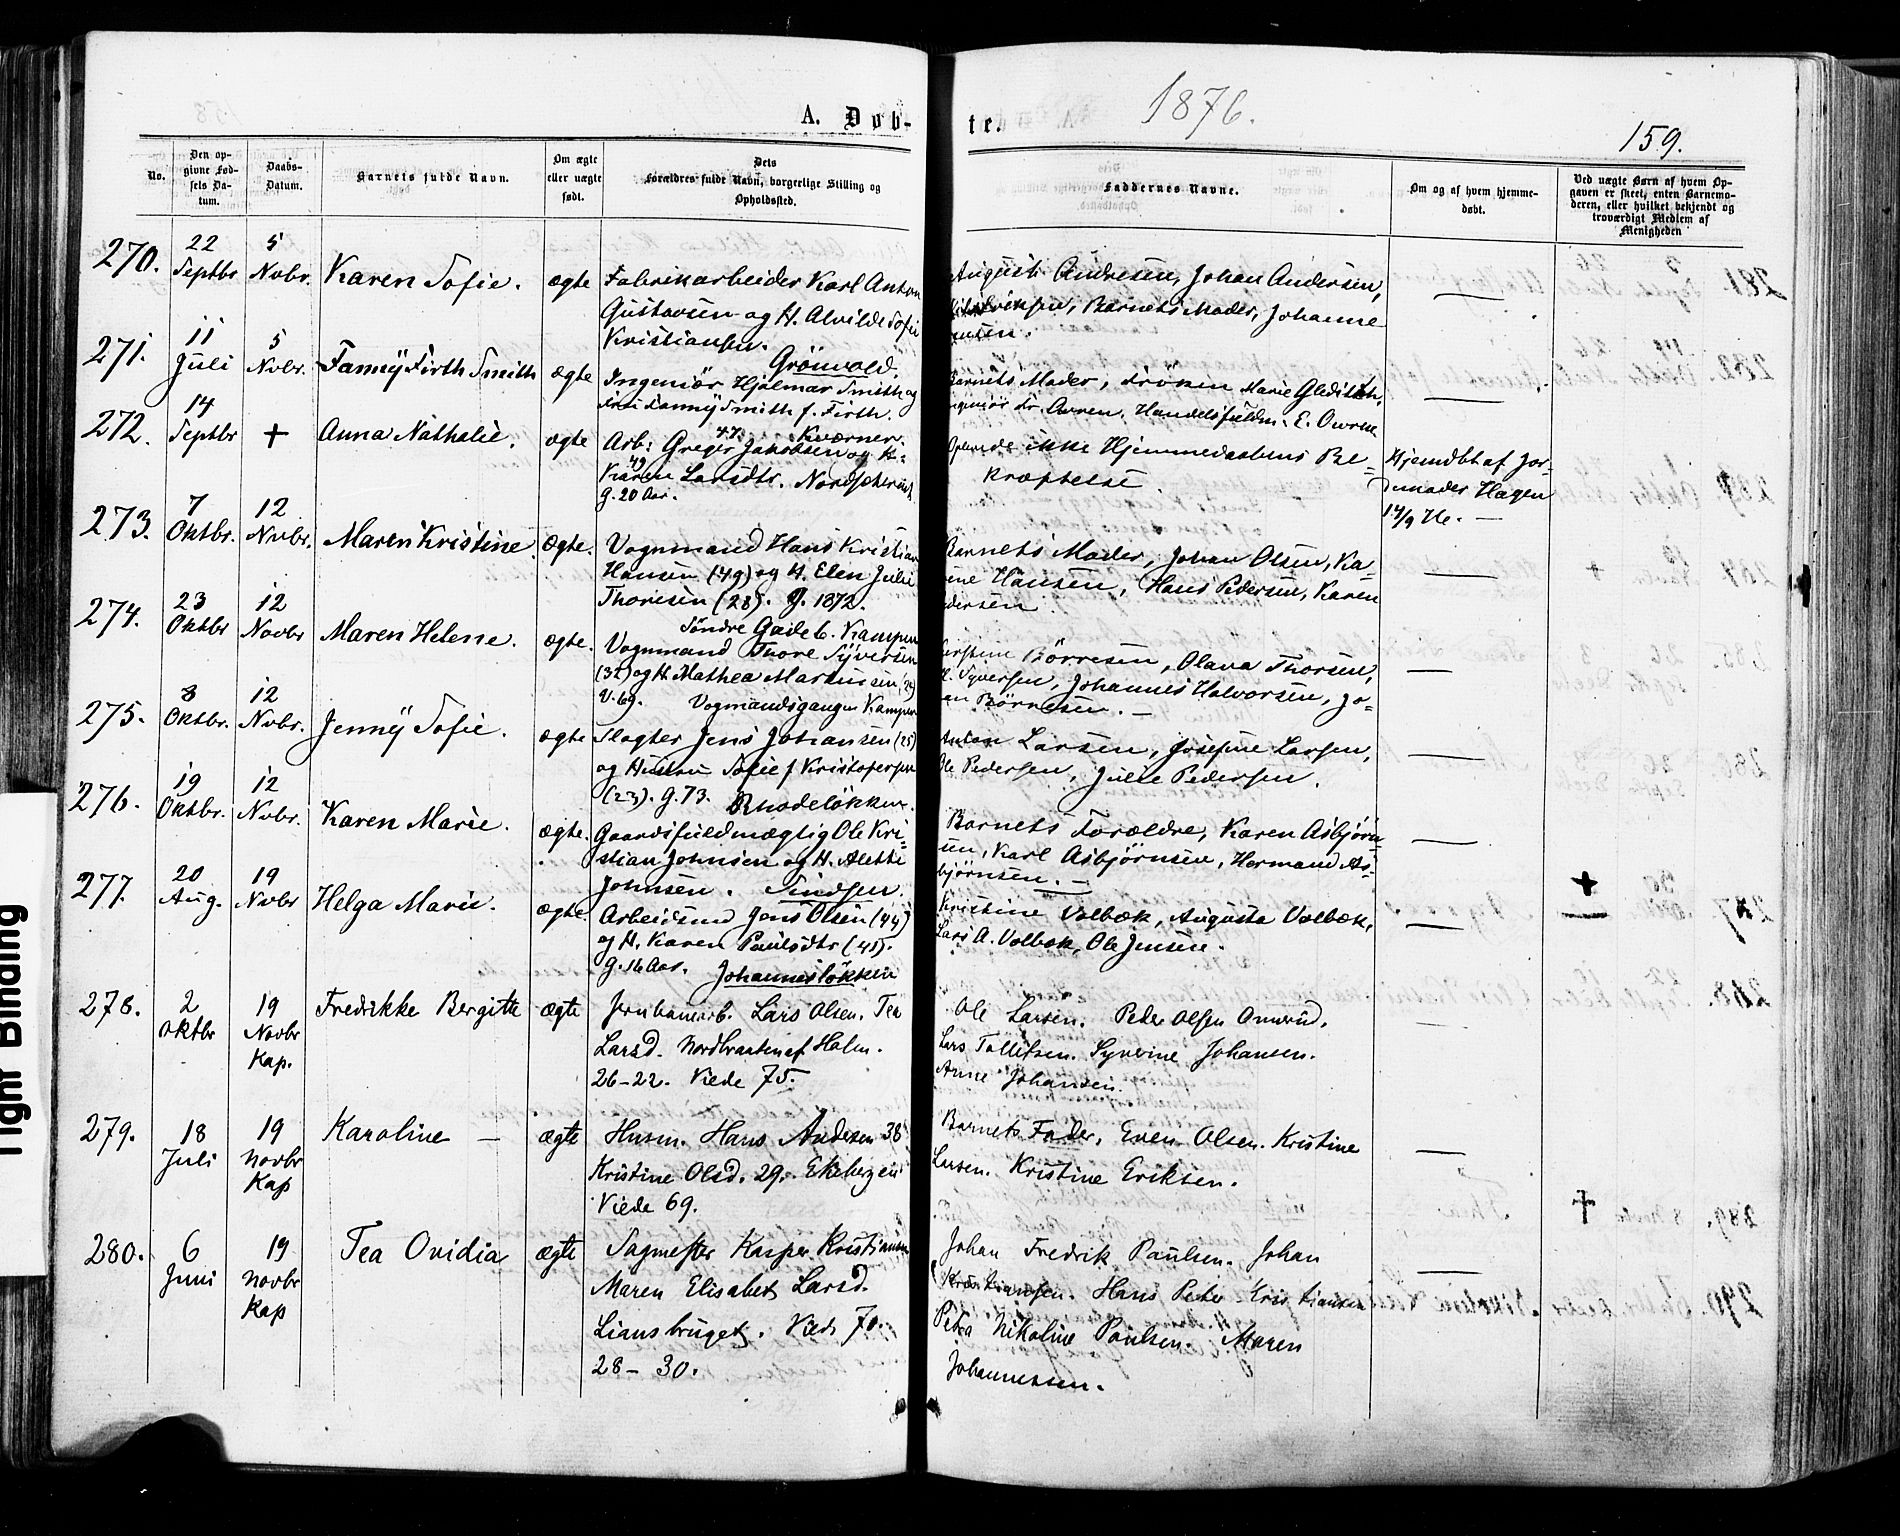 A. Døb-
te.
1876.
159.
No.
Den op-
givne Fød-
sels Da-
tum.
Daabs-
Datum.
Barnets fulde Navn.
Om ægte
eller uægte
født.
Dets
Forældres fulde Navn, borgerlige Stilling og
Opholdssted.
Faddernes Navne.
Om og af hvem hjemme-
døbt.
Ved uægte Børn af hvem Op-
gaven er skeet, enten Barnemo-
deren, eller hvilket bekjendt og
troværdigt Medlem af
Menigheden
270.
22
Septbr
5
Novbr.
Karen Sofie.
ægte
Fabrikarbeider Karl Anton
Gustavsen og H. Alvilde Sofie
Kristiansen.
August Andresen, Johan Andersen,
Barnets Moder, Johanne
271.
11
Juli
5
Novbr.
Fanny Firth Smith
ægte
Grönvold.
Ingeniør Hjalmar Smith og
Fanny Smith f. Firth.
Barnets Moder, Frøken Marie Gleditsch,
Handelsfuldm. E.
272.
14
Septbr
+
Anna Nathalie.
ægte
Kværner.
47.
Arb: Greger Jakobsen og H.
49
Karen Larsdtr.
g. 20 Aar.
ikke Hjemmedaabens Be-
kræftelse
Hjemdbt af Jor-
dmoder Hagen
14/9 76. —
273.
7
Oktbr.
12
Novbr.
Maren Kristine
ægte.
Vognmand Hans Kristian
Hansen (49) og H. Elen Julie
Thoresen (28). g. 1872.
Barnets Moder, Johan Olsen, Ka-
rine Hansen, Hans Pedersen, Karen
Pedersen
274.
23
Oktbr
12
Novbr
Maren Helene.
ægte.
Søndre Gade 6. Kampen
Vognmand Thore Syversen
(32) og H. Mathea Martinsen (24)
V. 69.
Børresen, Olava Thorsen,
Syversen, Johannes Halvorsen, Jo-
an Børresen. —
275.
8
Oktbr.
12
Novbr.
Jenny Sofie.
ægte
Vogmandsgangen Kampen
Slagter Jens Johansen (25)
og Hustru Sofie f. Kristofersen
(23). g. 73.
Anton Larsen, Josefine Larsen,
Ole Pedersen, Julie Pedersen.
276.
19
Oktbr.
12
Novbr.
Karen Marie.
ægte.
Rhodeløkken.
Gaardsfuldmægtig Ole Kri-
stian Johnsen og H. Alette
Johnsen.
Barnets Forældre, Karen Asbjørn-
sen, Karl Asbjørnsen, Herman As-
bjørnsen. —
277.
20
Aug.
19
Novbr
Helga Marie.
ægte.
Arbeidsmd Jens Olsen (44)
og H. Karen Paulsdtr (45).
g. 16 Aar. Johannesløkken
Kristine Volbæk, Augusta Volbæk,
Lars A. Volbæk, Ole Jensen.
278.
2
Oktbr
19
Novbr
Kap.
Fredrikke Bergitte
ægte
Jernbanearb. Lars Olsen. Tea
Larsd. Nordbraaten af Holm.
26–22. Viede 75.
Ole Larsen. Peder Olsen Omerud.
Lars Tollefsen. Syverine Johansen.
Anne Johansen.
279.
18
Juli
19
Novbr
Kap
Karoline —
ægte
Husm. Hans Andersen 38
Kristine Olsd. 29. Ekebergeie
Viede 69.
Barnets Fader, Even Olsen. Kristine
Larsen. Kristine Eriksen.
280.
6
Juni
19
Novbr
Kap
Tea Ovidia
ægte
Sagmester Kasper Kristiansen
Maren Elisabet Larsd.
Liansbruget. Viede 70.
28 – 30.
Johan Fredrik Paulsen. Johan
Kristiansen. Hans Peter Kristiansen
Petra Nikoline Paulsen. Maren
Johannessen.
Tight Binding